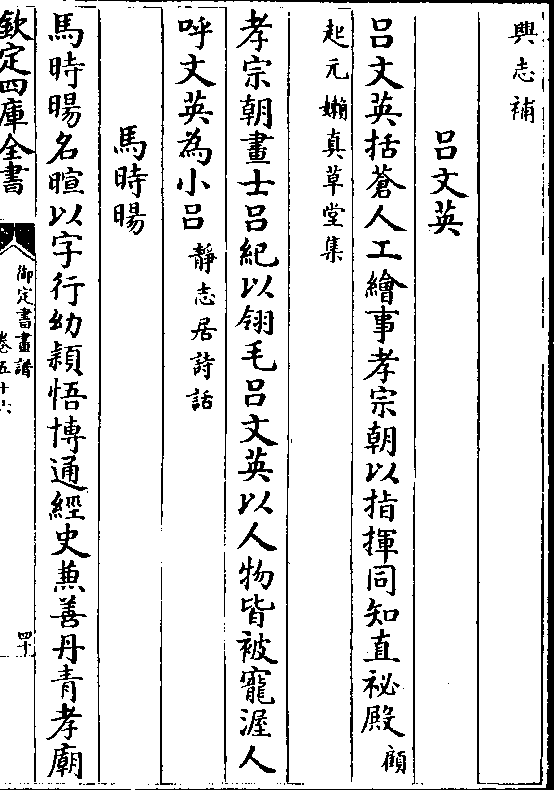 興志補
吕文英
吕文英括蒼人工繪事孝宗朝以指揮同知直祕殿顧
起元嬾真草堂集
孝宗朝畫士吕紀以翎毛吕文英以人物皆被寵渥人
呼文英為小吕靜志居詩話
馬時暘
馬時暘名暄以字行幼穎悟博通經史兼善丹青孝廟
欽定四庫全書
御定書畫譜
卷五十六
四十